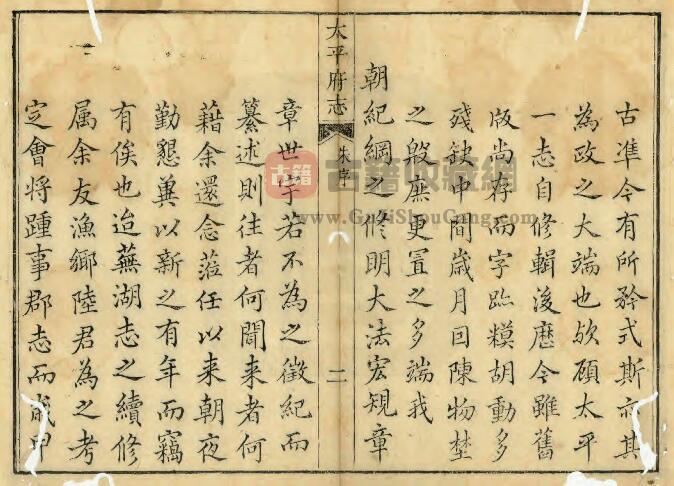 古準今有所矜式斯亦其
為政之大端也欤顾太平
一志自修輯後歴今雖舊
版尚存而字跡糢胡動多
殘缺中間歳月囙陳物埜
之殷庶更置之多端我
朝紀綱之修明大法宏規章
太平府志
朱序
二
章世宇若不為之徵紀而
纂述則往者何聞来者何
藉余還念蒞任以来朝夜
勤懇兾以新之有年而竊
有俟也迨蕪湖志之續修
属余友漁鄉陸君為之考
定會将踵事郡志而歳甲
古籍
古籍收藏網
www.GuJiShouCang.com